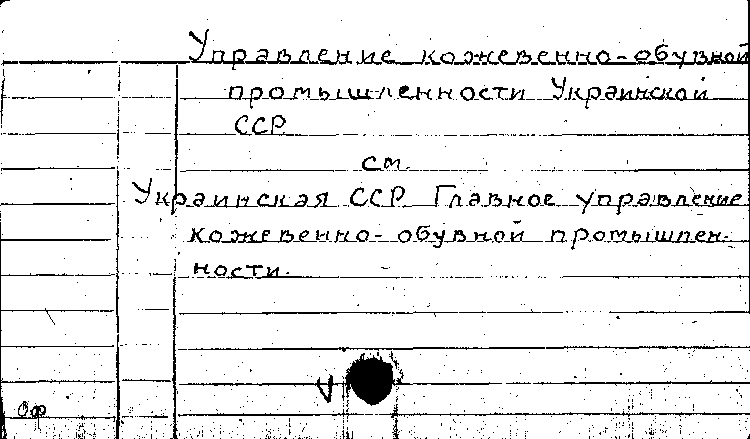 Управление кожевенно-обувной
промышленности Украинской
ССР
см.
Украинская ССР Главное управление
кожевенно-обувной промышлен-
ности.
V
Оф